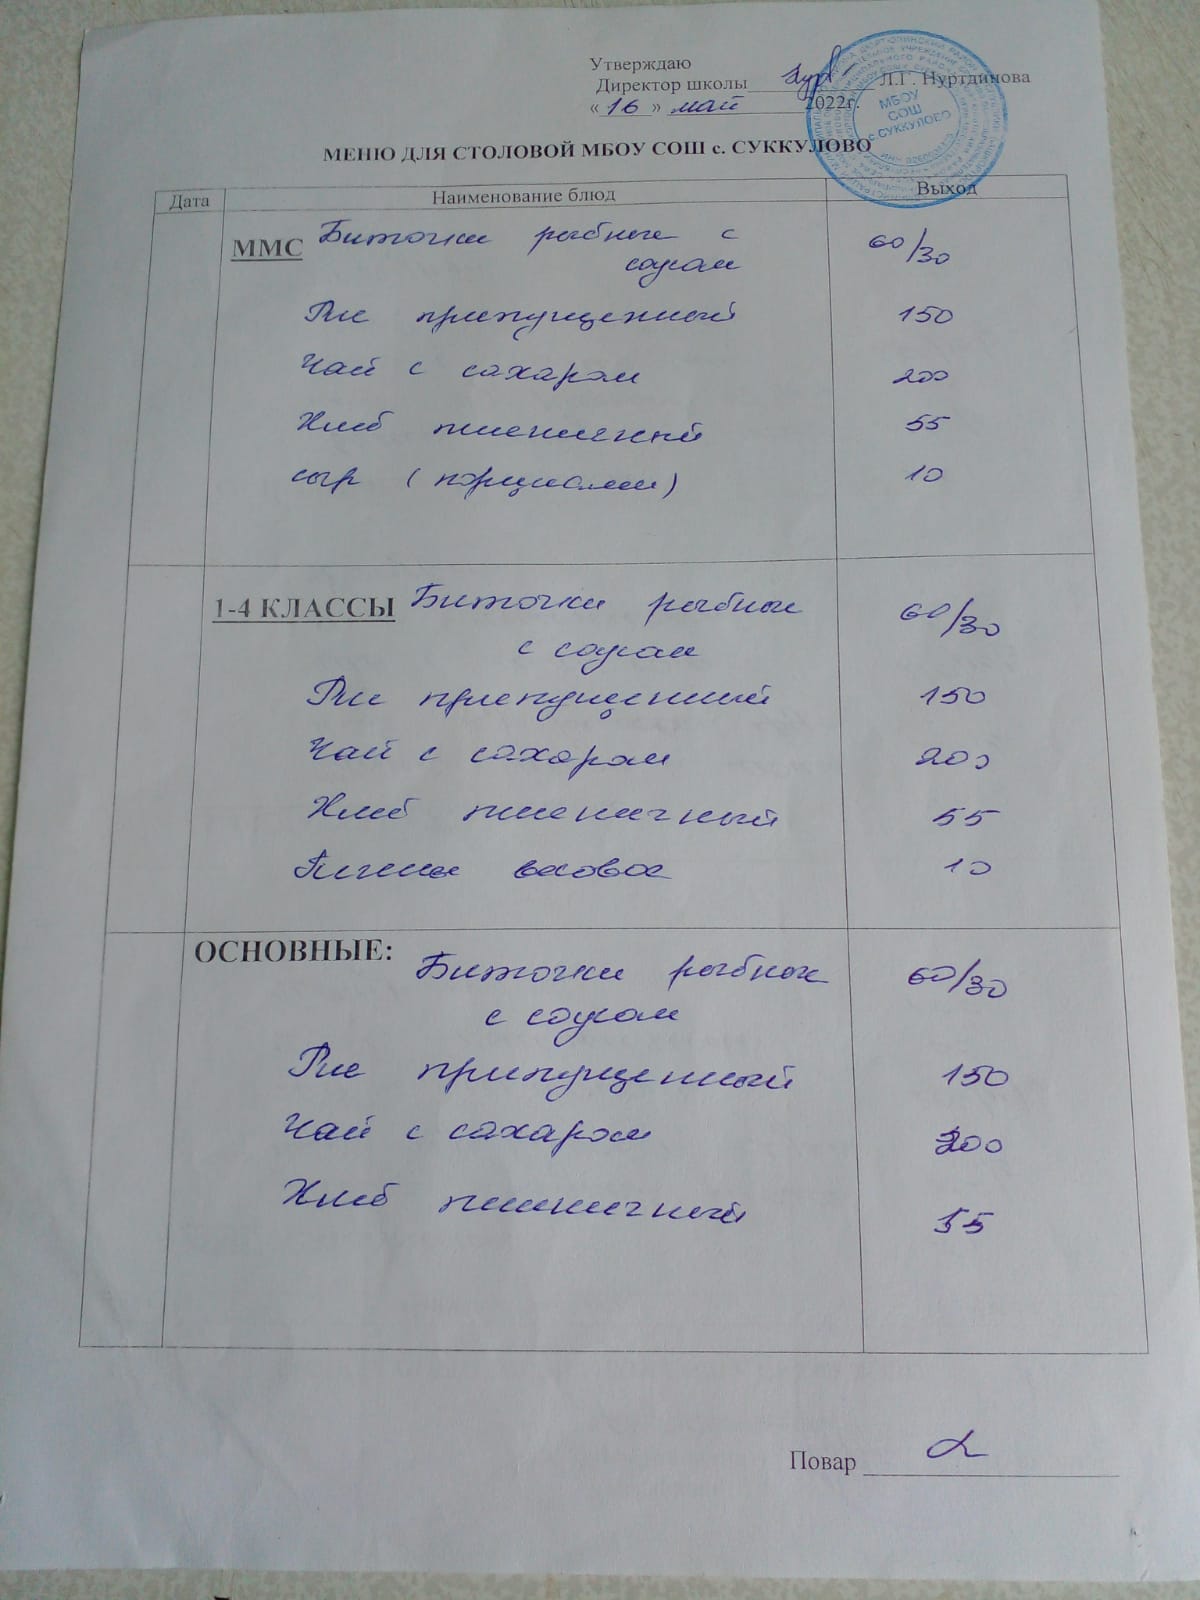 Утверждаю
Директор школы Л.Г. Нуртдинова
« 16 » май 2022г.
МБОУ
СОШ
с СУККУЛОВО
МЕНЮ ДЛЯ СТОЛОВОЙ МБОУ СОШ с. СУККУЛОВО
Дата Наименование блюд Выход
ММС Биточки рыбные с 60/30
соусом
Рис припущенный 150
Чай с сахаром 200
Хлеб пшеничный 55
сыр (порциями) 10
1-4 КЛАССЫ Биточки рыбные 60/30
с соусом
Рис припущенный 150
Чай с сахаром 200
Хлеб пшеничный 55
Печенье весовое 10
ОСНОВНЫЕ:
Биточки рыбные 60/30
с соусом
Рис припущенный 150
Чай с сахаром 200
Хлеб пшеничный 55
Повар